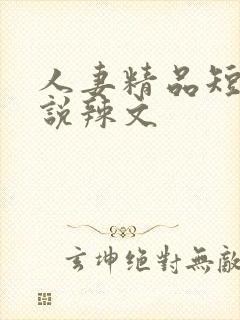 人妻精品短
說辣文
玄坤絕對無敵